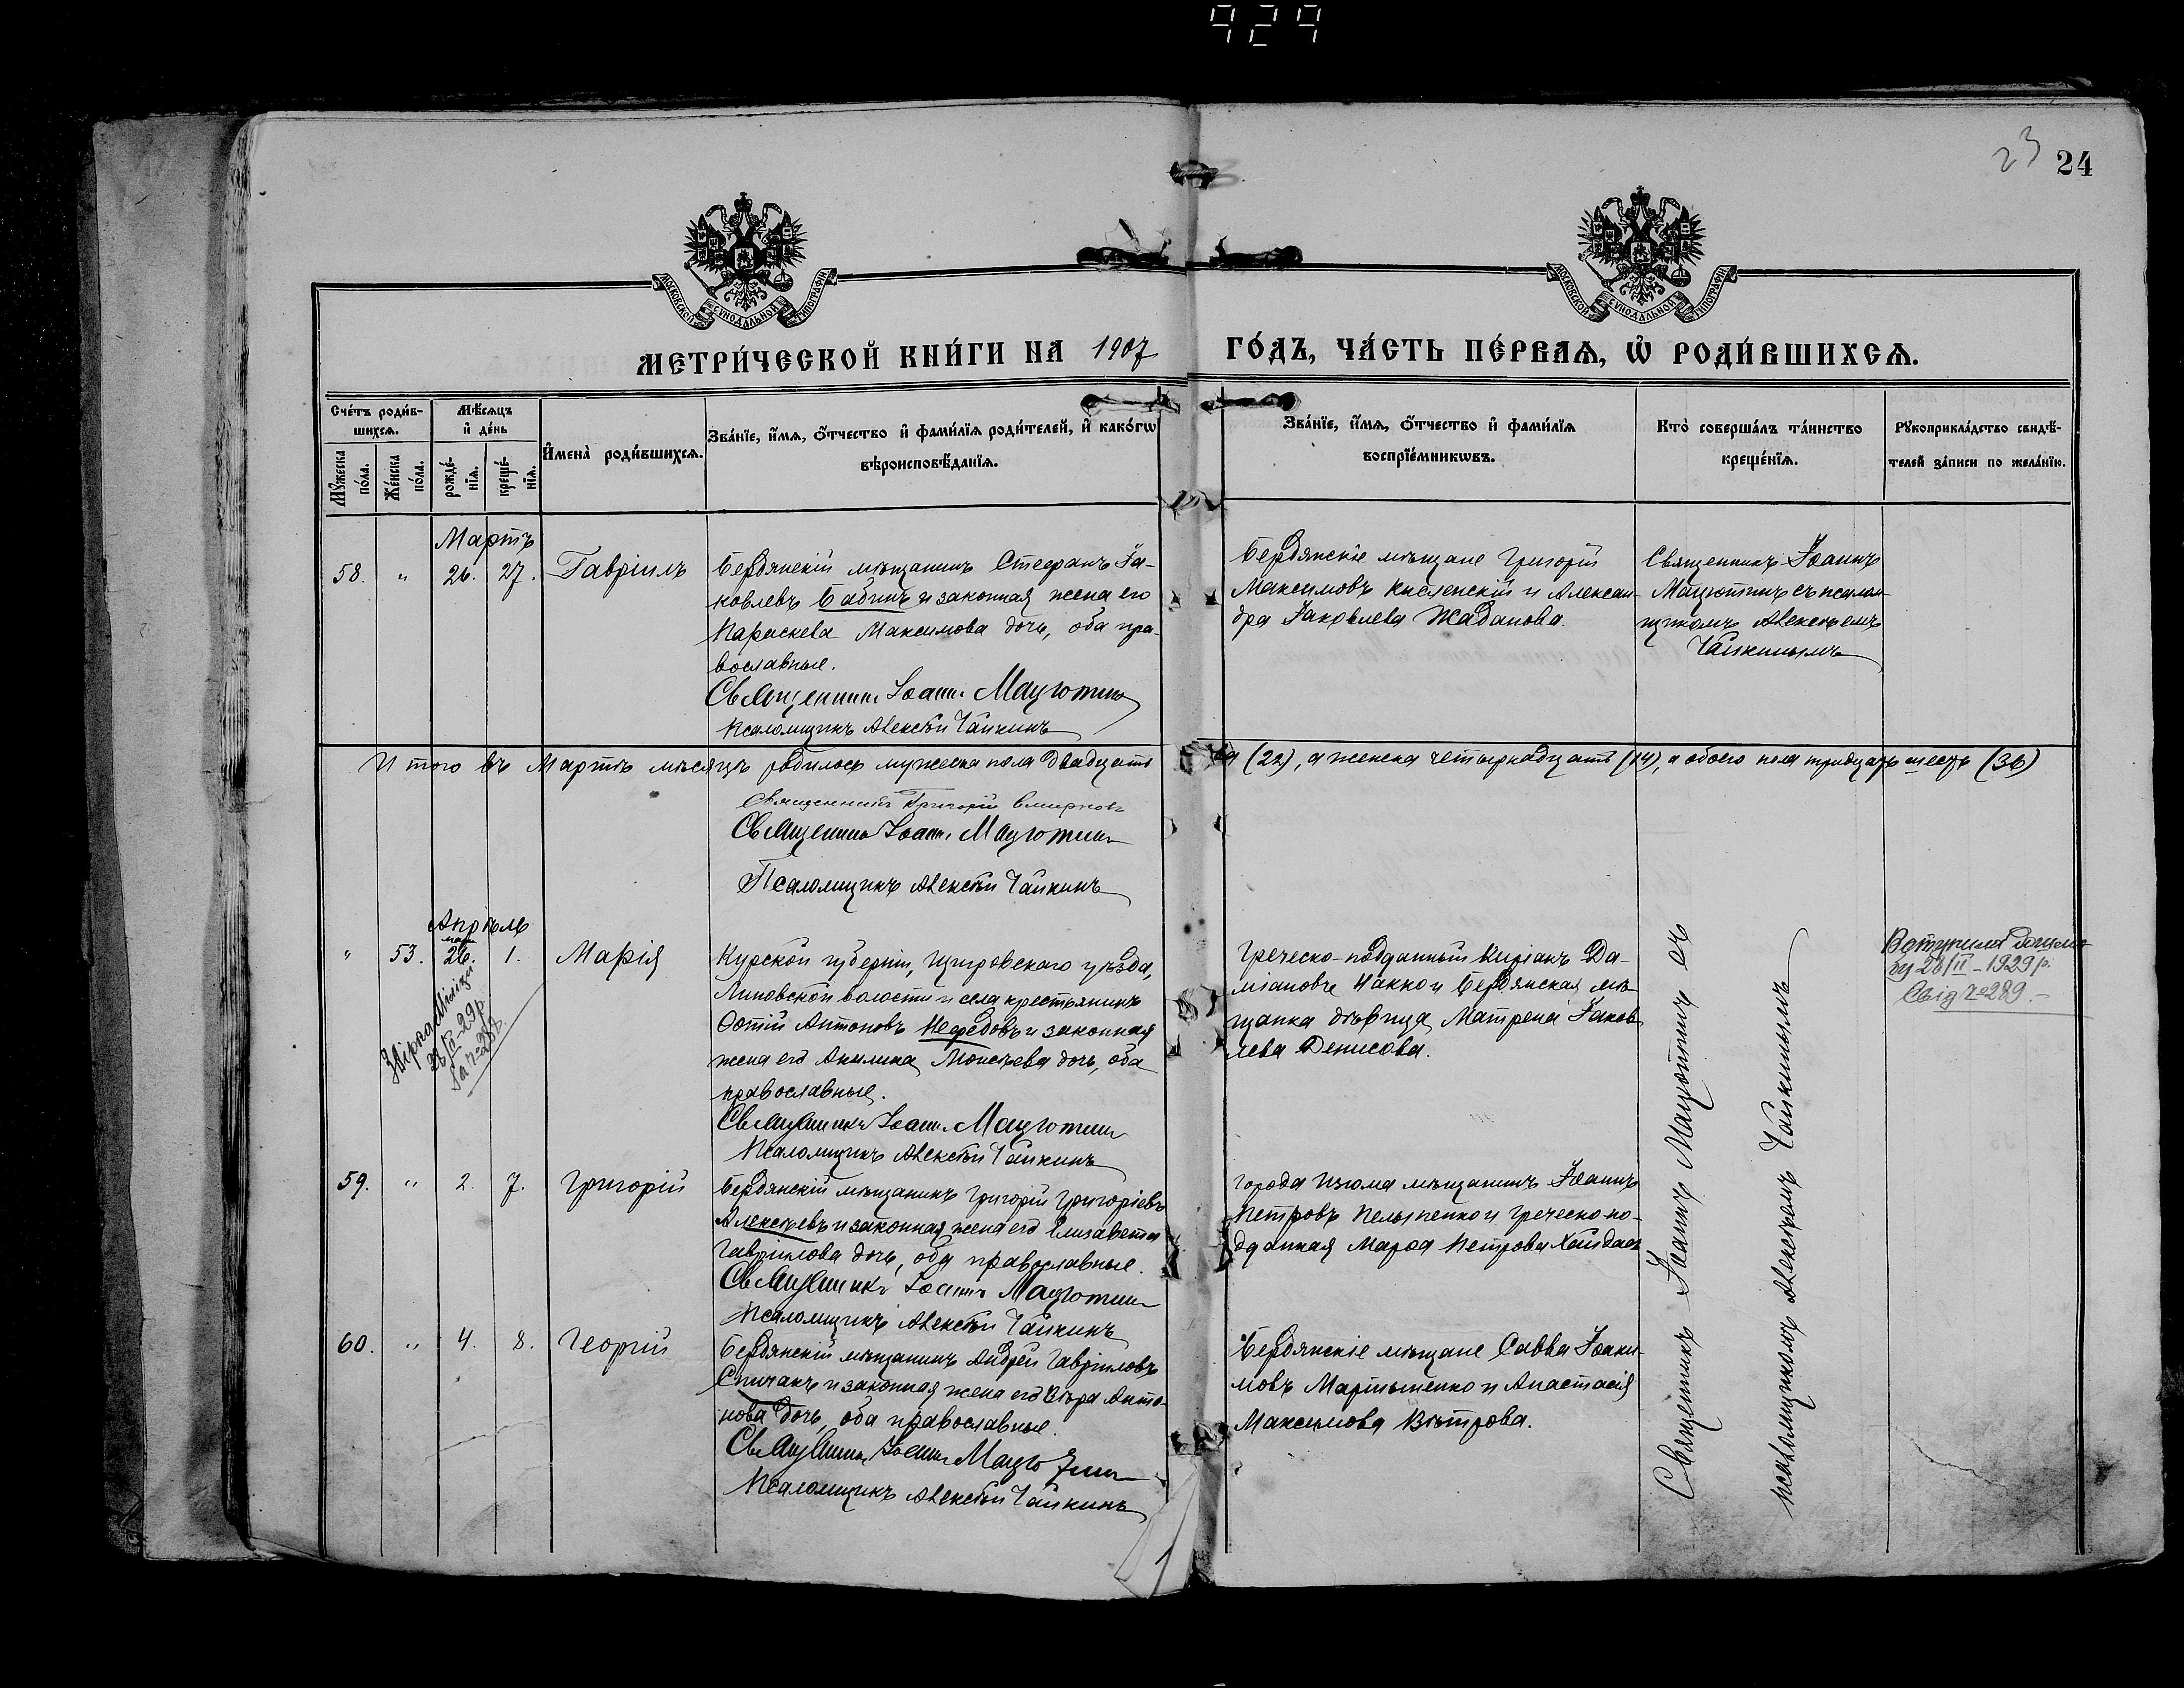 929
23
24
МОСКОВСКОЙ СУНОДАЛЬНОЙ ТИПОГРАФІИ
МОСКОВСКОЙ СУНОДАЛЬНОЙ ТИПОГРАФІИ
МЕТРИ́ЧЕСКОЙ КНИ́ГИ НА 1907 ГО́ДЪ, ЧА́СТЬ ПЕ́РВАѦ, Ѡ҆ РОДИ́ВШИХСѦ.
Сче́тъ роди́в-
шихсѧ.
Мꙋ́жеска по́ла.
Же́нска по́ла.
Мѣ́сѧцъ
и҆ де́нь
рожде́-
нїѧ.
креще́-
нїѧ.
И҆мена̀ роди́вшихсѧ.
Зва́нїе, и҆́мѧ, ѻ҆́тчество и҆ фами́лїѧ роди́телей, и҆ како́гѡ
вѣроисповѣ́данїѧ.
Зва́нїе, и҆́мѧ, ѻ҆́тчество и҆ фами́лїѧ
воспрїе́мникѡвъ.
Кто̀ соверша́лъ та́инство
креще́нїѧ.
Рꙋкоприкла́дство свидѣ́-
телей за́писи по жела́нїю.
Мартъ
58. " 26. 27. Гавріилъ
Бердянскій мѣщанинъ Стефанъ Іа-
ковлевъ Бабичъ и законная жена его
Параскева Максимова дочь, оба пра-
вославные.
Священникъ Іоаннъ Мацютинъ
Псаломщикъ Алексѣй Чайкинъ
Бердянскіе мѣщане Григорій
Максимовъ и Алексан-
дра Іаковлева Жаданова.
Священникъ Іоаннъ
Мацютинъ съ псалом-
щикомъ Алексѣемъ
Чайкинымъ
Итого въ Мартѣ мѣсяцѣ родилось мужеска пола двадцать два (22), а женска четырнадцать (14), а обоего пола тридцать шесть (36)
Священникъ Григорій Смирновъ
Священникъ Іоаннъ Мацютинъ
Псаломщикъ Алексѣй Чайкинъ
Апрѣль
" 53. 26. 1. Марія
28/II-29р.
Курской губерніи, Щигровскаго уѣзда,
Липовской волости и села крестьянинъ
Фотій Антоновъ Нефедовъ и законная
жена его Акилина Моисѣева дочь, оба
православные.
Священникъ Іоаннъ Мацютинъ
Псаломщикъ Алексѣй Чайкинъ
Греческо-подданный Киріакъ Да-
міановъ и Бердянская мѣ-
щанка дѣвица Матрена Іаков-
лева Денисова.
28/II-1929р.
Свід № 289.-
59. " 2. 7. Григорій
Бердянскій мѣщанинъ Григорій Григоріевъ
Алексѣевъ и законная жена его Елизавета
Гавріилова дочь, оба православные.
Священникъ Іоаннъ Мацютинъ
Псаломщикъ Алексѣй Чайкинъ
Города Изюма мѣщанинъ Іоаннъ
Петровъ и греческо-по-
дданная Марфа Петрова
60. " 4. 8. Георгій
Бердянскій мѣщанинъ Андрей Гавріиловъ
Спичакъ и законная жена его Вѣра Анто-
нова дочь, оба православные.
Священникъ Іоаннъ Мацютинъ
Псаломщикъ Алексѣй Чайкинъ
Бердянскіе мѣщане Савва Іоаки-
мовъ Мартыненко и Анастасія
Максимова Вѣтрова.
Священникъ Іоаннъ Мацютинъ съ
псаломщикомъ Алексѣемъ Чайкинымъ